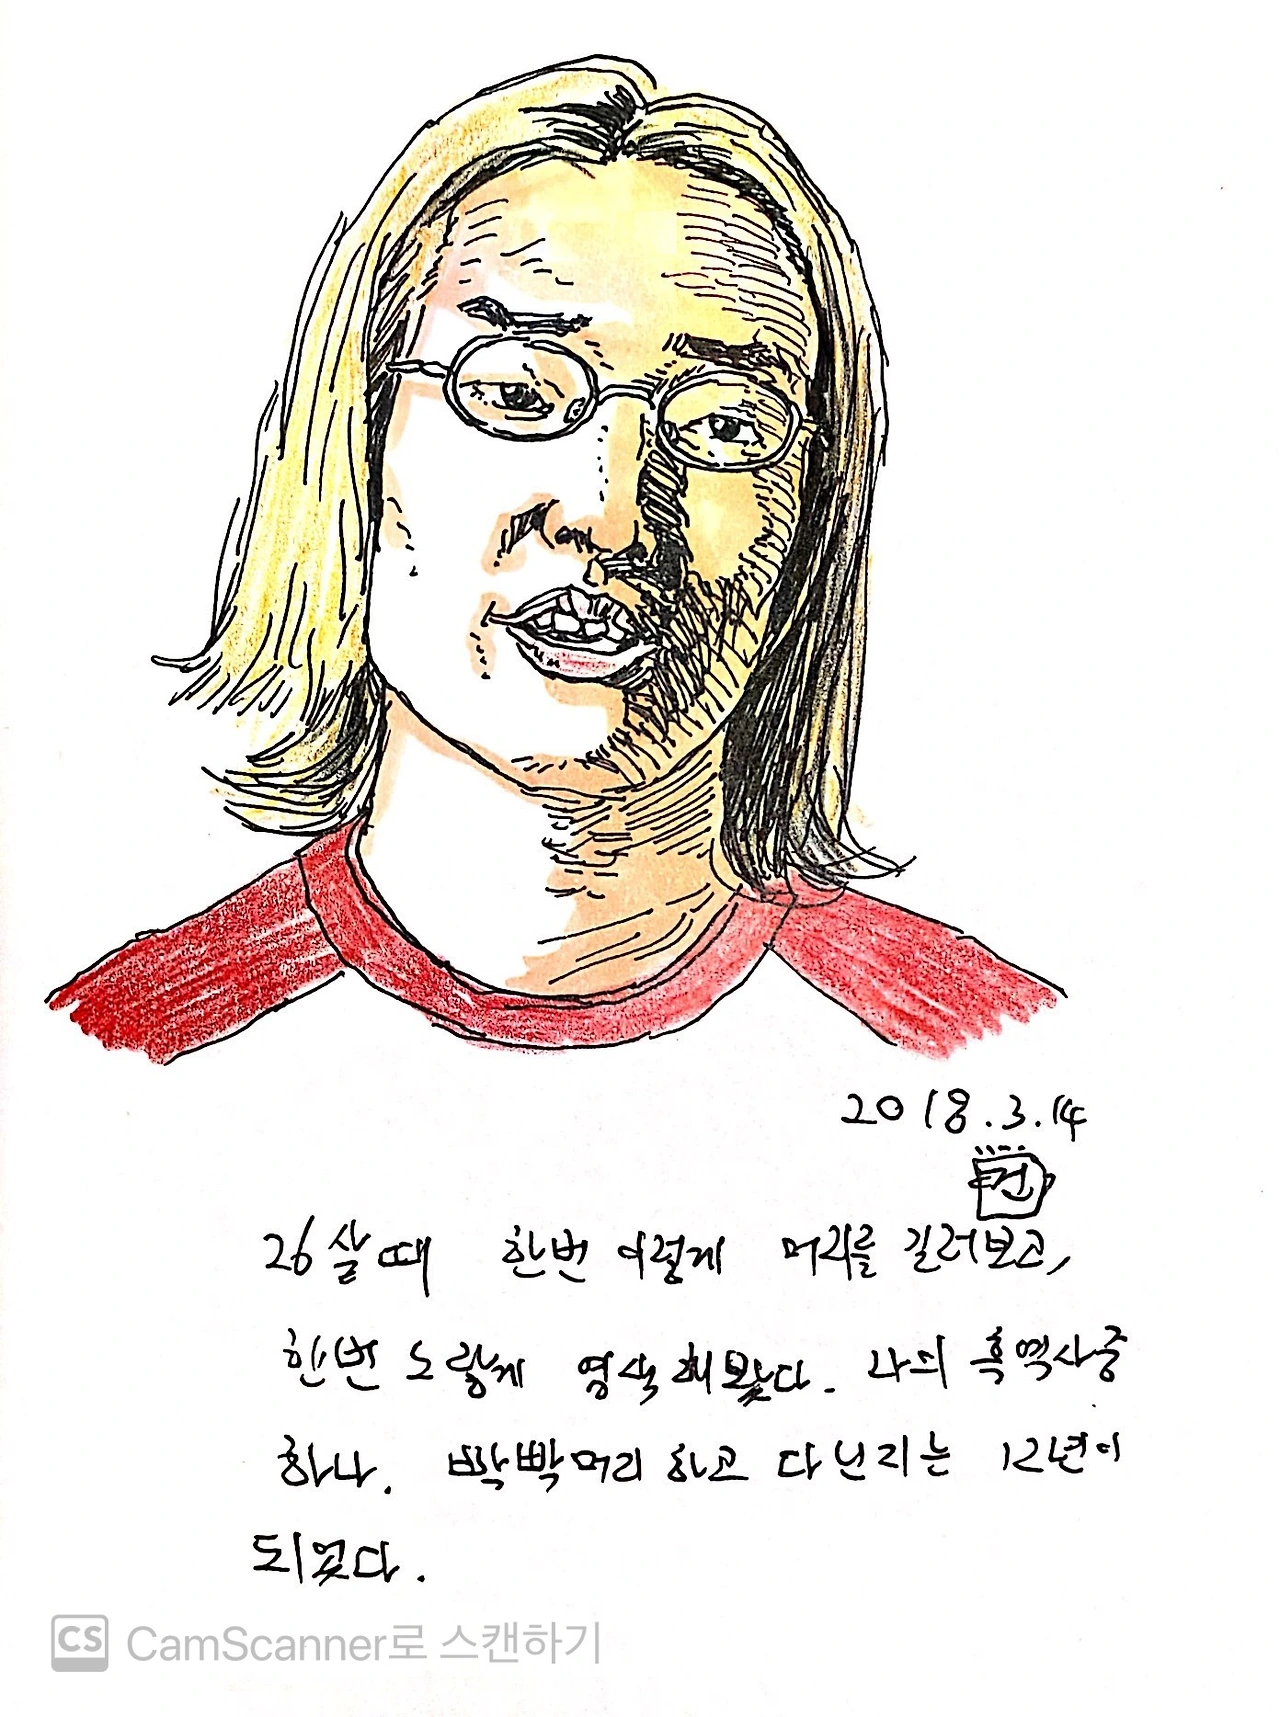 2018.3.14
건
26살때 한번 이렇게 머리를 길러보고,
한번 노랗게 염색해봤다. 나의 흑역사중
하나. 빡빡머리 하고 다닌지는 12년이
되었다.
CS CamScanner로 스캔하기